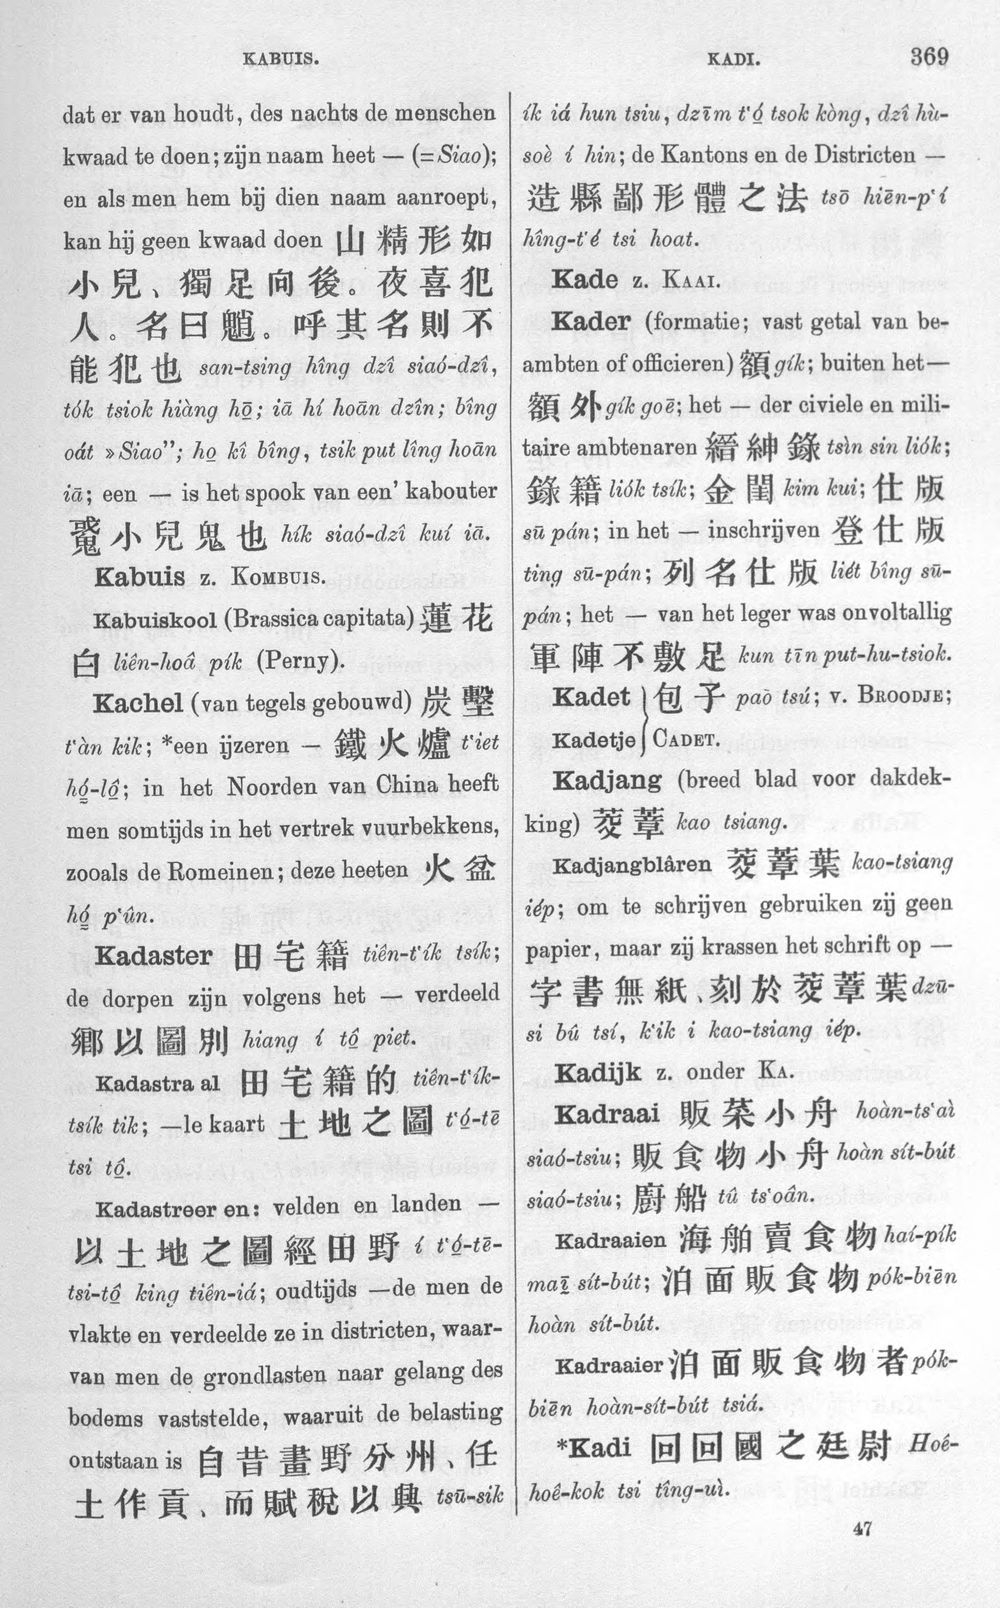 KABUIS.
KADI.
369
dat er van houdt, des nachts de menschen
kwaad te doen; zijn naam heet — (=Siao);
en als men hem bij dien naam aanroept,
kan hij geen kwaad doen 山精形如
小兒、獨足向後。夜喜犯
人。名曰魈。呼其名則不
能犯也 san-tsing hîng dzî siaó-dzî,
tók tsiok hiàng hō; iā hí hoān dzîn; bîng
oát »Siao”; ho kî bîng, tsik put lîng hoān
iā; een — is het spook van een’ kabouter
小兒鬼也 hík siaó-dzî kuí iā.
Kabuis z. KOMBUIS.
Kabuiskool (Brassica capitata) 蓮花
白 liên-hoâ pík (Perny).
Kachel (van tegels gebouwd) 炭墼
t‘àn kik; *een ijzeren — 鐵火爐 t‘iet
hó̤-lô̤; in het Noorden van China heeft
men somtijds in het vertrek vuurbekkens,
zooals de Romeinen; deze heeten 火盆
hó̤ p‘ûn.
Kadaster 田宅籍 tiên-t‘ík tsík;
de dorpen zijn volgens het — verdeeld
鄉以圖別 hiang í tô̤ piet.
Kadastraal 田宅籍的 tiên-t‘ík-
tsík tik; —le kaart 土地之圖 t‘ó̤-tē
tsi tô̤.
Kadastreeren: velden en landen —
以土地之圖經田野 í t‘ó̤-tē-
tsi-tô̤ king tiên-iá; oudtijds —de men de
vlakte en verdeelde ze in districten, waar-
van men de grondlasten naar gelang des
bodems vaststelde, waaruit de belasting
ontstaan is 自昔畫野分州、任
土作貢、而賦稅以興 tsū-sik
ík iá hun tsiu, dzīm t‘ó̤ tsok kòng, dzî hù-
soè í hin; de Kantons en de Districten —
造縣鄙形體之法 tsō hiēn-p‘í
hîng-t‘é tsi hoat.
Kade z. KAAI.
Kader (formatie; vast getal van be-
ambten of officieren) 額 gík; buiten het—
額外 gík goē; het — der civiele en mili-
taire ambtenaren 縉紳錄 tsìn sin liók;
錄籍 liók tsík; 金閨 kim kui; 仕版
sū pán; in het — inschrijven 登仕版
ting sū-pán; 列名仕版 liét bîng sū-
pán; het — van het leger was onvoltallig
軍陣不敷足 kun tīn put-hu-tsiok.
Kadet } 包子 paō tsú; v. BROODJE;
Kadetje } CADET.
Kadjang (breed blad voor dakdek-
king) 茭蕈 kao tsiang.
Kadjangblâren 茭蕈葉 kao-tsiang
iép; om te schrijven gebruiken zij geen
papier, maar zij krassen het schrift op —
字書無紙、刻於茭蕈葉 dzū-
si bú tsí, k‘ik i kao-tsiang iép.
Kadijk z. onder KA.
Kadraai 販菜小舟 hoàn-ts‘aì
siaó-tsiu; 販食物小舟 hoàn sít-bút
siaó-tsiu; 廚船 tû ts‘oân.
Kadraaien 海舶賣食物 haí-pík
maī sít-bút; 泊面販食物 pók-biēn
hoàn sít-bút.
Kadraaier 泊面販食物者 pók-
biēn hoàn-sít-bút tsiá.
*Kadi 回回國之廷尉 Hoê-
hoê-kok tsi tîng-uì.
47